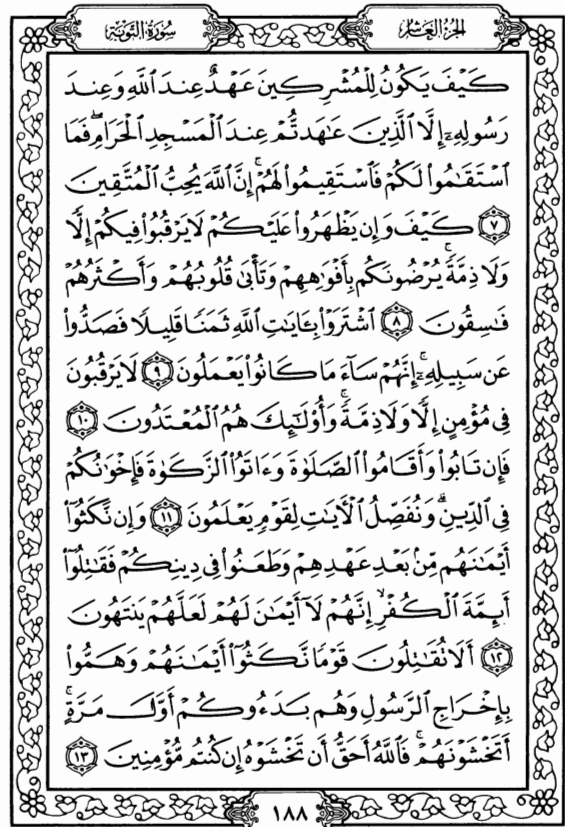 الجزء العاشر
سورة التوبة
كَيْفَ يَكُونُ لِلْمُشْرِكِينَ عَهْدٌ عِندَ ٱللَّهِ وَعِندَ
رَسُولِهِۦٓ إِلَّا ٱلَّذِينَ عَٰهَدتُّمْ عِندَ ٱلْمَسْجِدِ ٱلْحَرَامِ ۖ فَمَا
ٱسْتَقَٰمُوا۟ لَكُمْ فَٱسْتَقِيمُوا۟ لَهُمْ ۚ إِنَّ ٱللَّهَ يُحِبُّ ٱلْمُتَّقِينَ
٧ كَيْفَ وَإِن يَظْهَرُوا۟ عَلَيْكُمْ لَا يَرْقُبُوا۟ فِيكُمْ إِلًّا
وَلَا ذِمَّةً ۚ يُرْضُونَكُم بِأَفْوَٰهِهِمْ وَتَأْبَىٰ قُلُوبُهُمْ وَأَكْثَرُهُمْ
فَٰسِقُونَ ٨ ٱشْتَرَوْا۟ بِـَٔايَٰتِ ٱللَّهِ ثَمَنًا قَلِيلًا فَصَدُّوا۟
عَن سَبِيلِهِۦٓ ۚ إِنَّهُمْ سَآءَ مَا كَانُوا۟ يَعْمَلُونَ ٩ لَا يَرْقُبُونَ
فِى مُؤْمِنٍ إِلًّا وَلَا ذِمَّةً ۚ وَأُو۟لَٰٓئِكَ هُمُ ٱلْمُعْتَدُونَ ١٠
فَإِن تَابُوا۟ وَأَقَامُوا۟ ٱلصَّلَوٰةَ وَءَاتَوُا۟ ٱلزَّكَوٰةَ فَإِخْوَٰنُكُمْ
فِى ٱلدِّينِ ۗ وَنُفَصِّلُ ٱلْءَايَٰتِ لِقَوْمٍ يَعْلَمُونَ ١١ وَإِن نَّكَثُوٓا۟
أَيْمَٰنَهُم مِّنۢ بَعْدِ عَهْدِهِمْ وَطَعَنُوا۟ فِى دِينِكُمْ فَقَٰتِلُوٓا۟
أَئِمَّةَ ٱلْكُفْرِ ۙ إِنَّهُمْ لَآ أَيْمَٰنَ لَهُمْ لَعَلَّهُمْ يَنتَهُونَ
١٢ أَلَا تُقَٰتِلُونَ قَوْمًا نَّكَثُوٓا۟ أَيْمَٰنَهُمْ وَهَمُّوا۟
بِإِخْرَاجِ ٱلرَّسُولِ وَهُم بَدَءُوكُمْ أَوَّلَ مَرَّةٍ ۚ
أَتَخْشَوْنَهُمْ ۚ فَٱللَّهُ أَحَقُّ أَن تَخْشَوْهُ إِن كُنتُم مُّؤْمِنِينَ ١٣
١٨٨